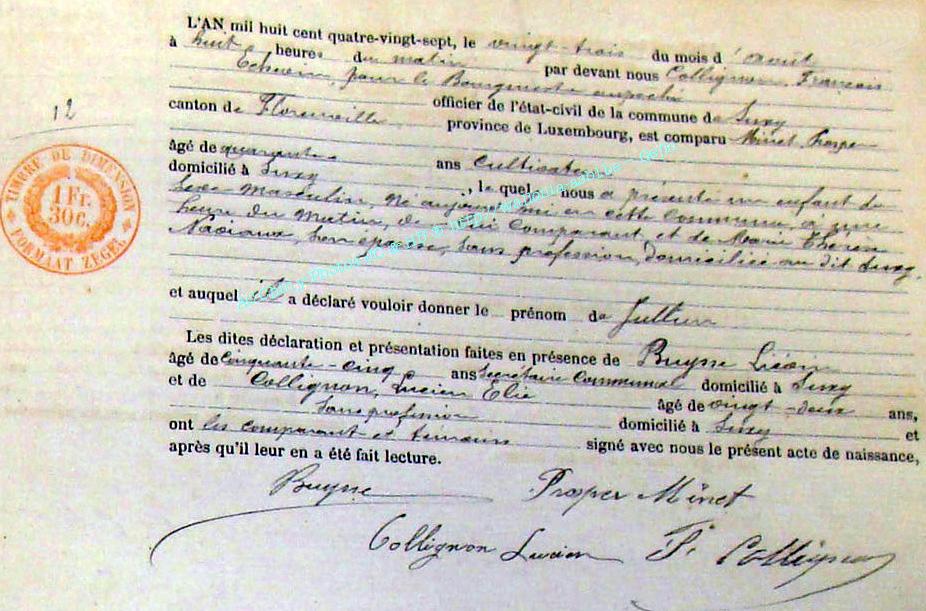 L'AN mil huit cent quatre-vingt-sept, le vingt-trois du mois d'août
à huit heures du matin par devant nous Collignon, François
Echevin, pour le Bourgmestre empêché
officier de l'état-civil de la commune de Suxy
canton de Florenville province de Luxembourg, est comparu Minet, Prosper
âgé de quarante ans Cultivateur
domicilié à Suxy, lequel nous a présenté un enfant du
sexe masculin, né aujourd'hui en cette commune, à une
heure du matin, de lui comparant, et de Marie Thérèse
Naviaux, son épouse, sans profession, domiciliée au dit Suxy,
et auquel il a déclaré vouloir donner le prénom de Jullien
Les dites déclaration et présentation faites en présence de Buysse Liévin
âgé de Cinquante-cinq ans Secrétaire Communal domicilié à Suxy
et de Collignon, Lucien Elie âgé de vingt-deux ans,
Sans profession domicilié à Suxy et
ont les comparant et témoins signé avec nous le présent acte de naissance,
après qu'il leur en a été fait lecture.
Buysse Prosper Minet
Collignon Lucien F. Collignon
12
TIMBRE DE DIMENSION
1 Fr.
30 c.
FORMAAT ZEGEL